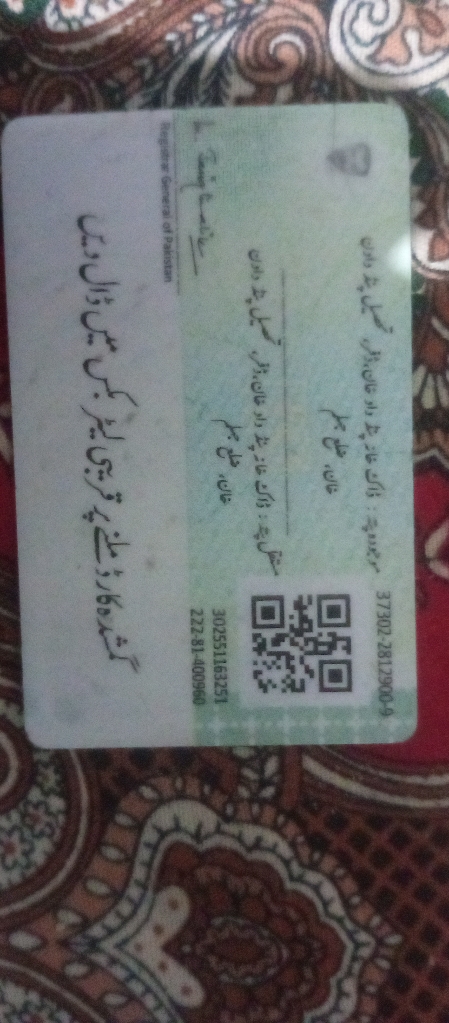 37302-2812900-9
موجودہ پتہ : ڈاک خانہ پنڈ داد خان، ڈفر، تحصیل پنڈ دادن
خان، ضلع جہلم
مستقل پتہ : ڈاک خانہ پنڈ داد خان، ڈفر، تحصیل پنڈ دادن
خان، ضلع جہلم
302551163251
222-81-400960
Registrar General of Pakistan
گمشدہ کارڈ ملنے پر قریبی لیٹر بکس میں ڈال دیں